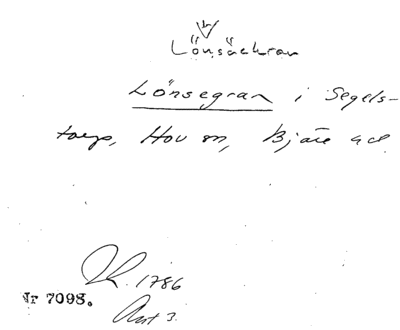 Lönsäckran
Lönsegran i Segels-
torp, Hov sn, Bjäre hd
R. 1786
Nr 7098. Akt 3.